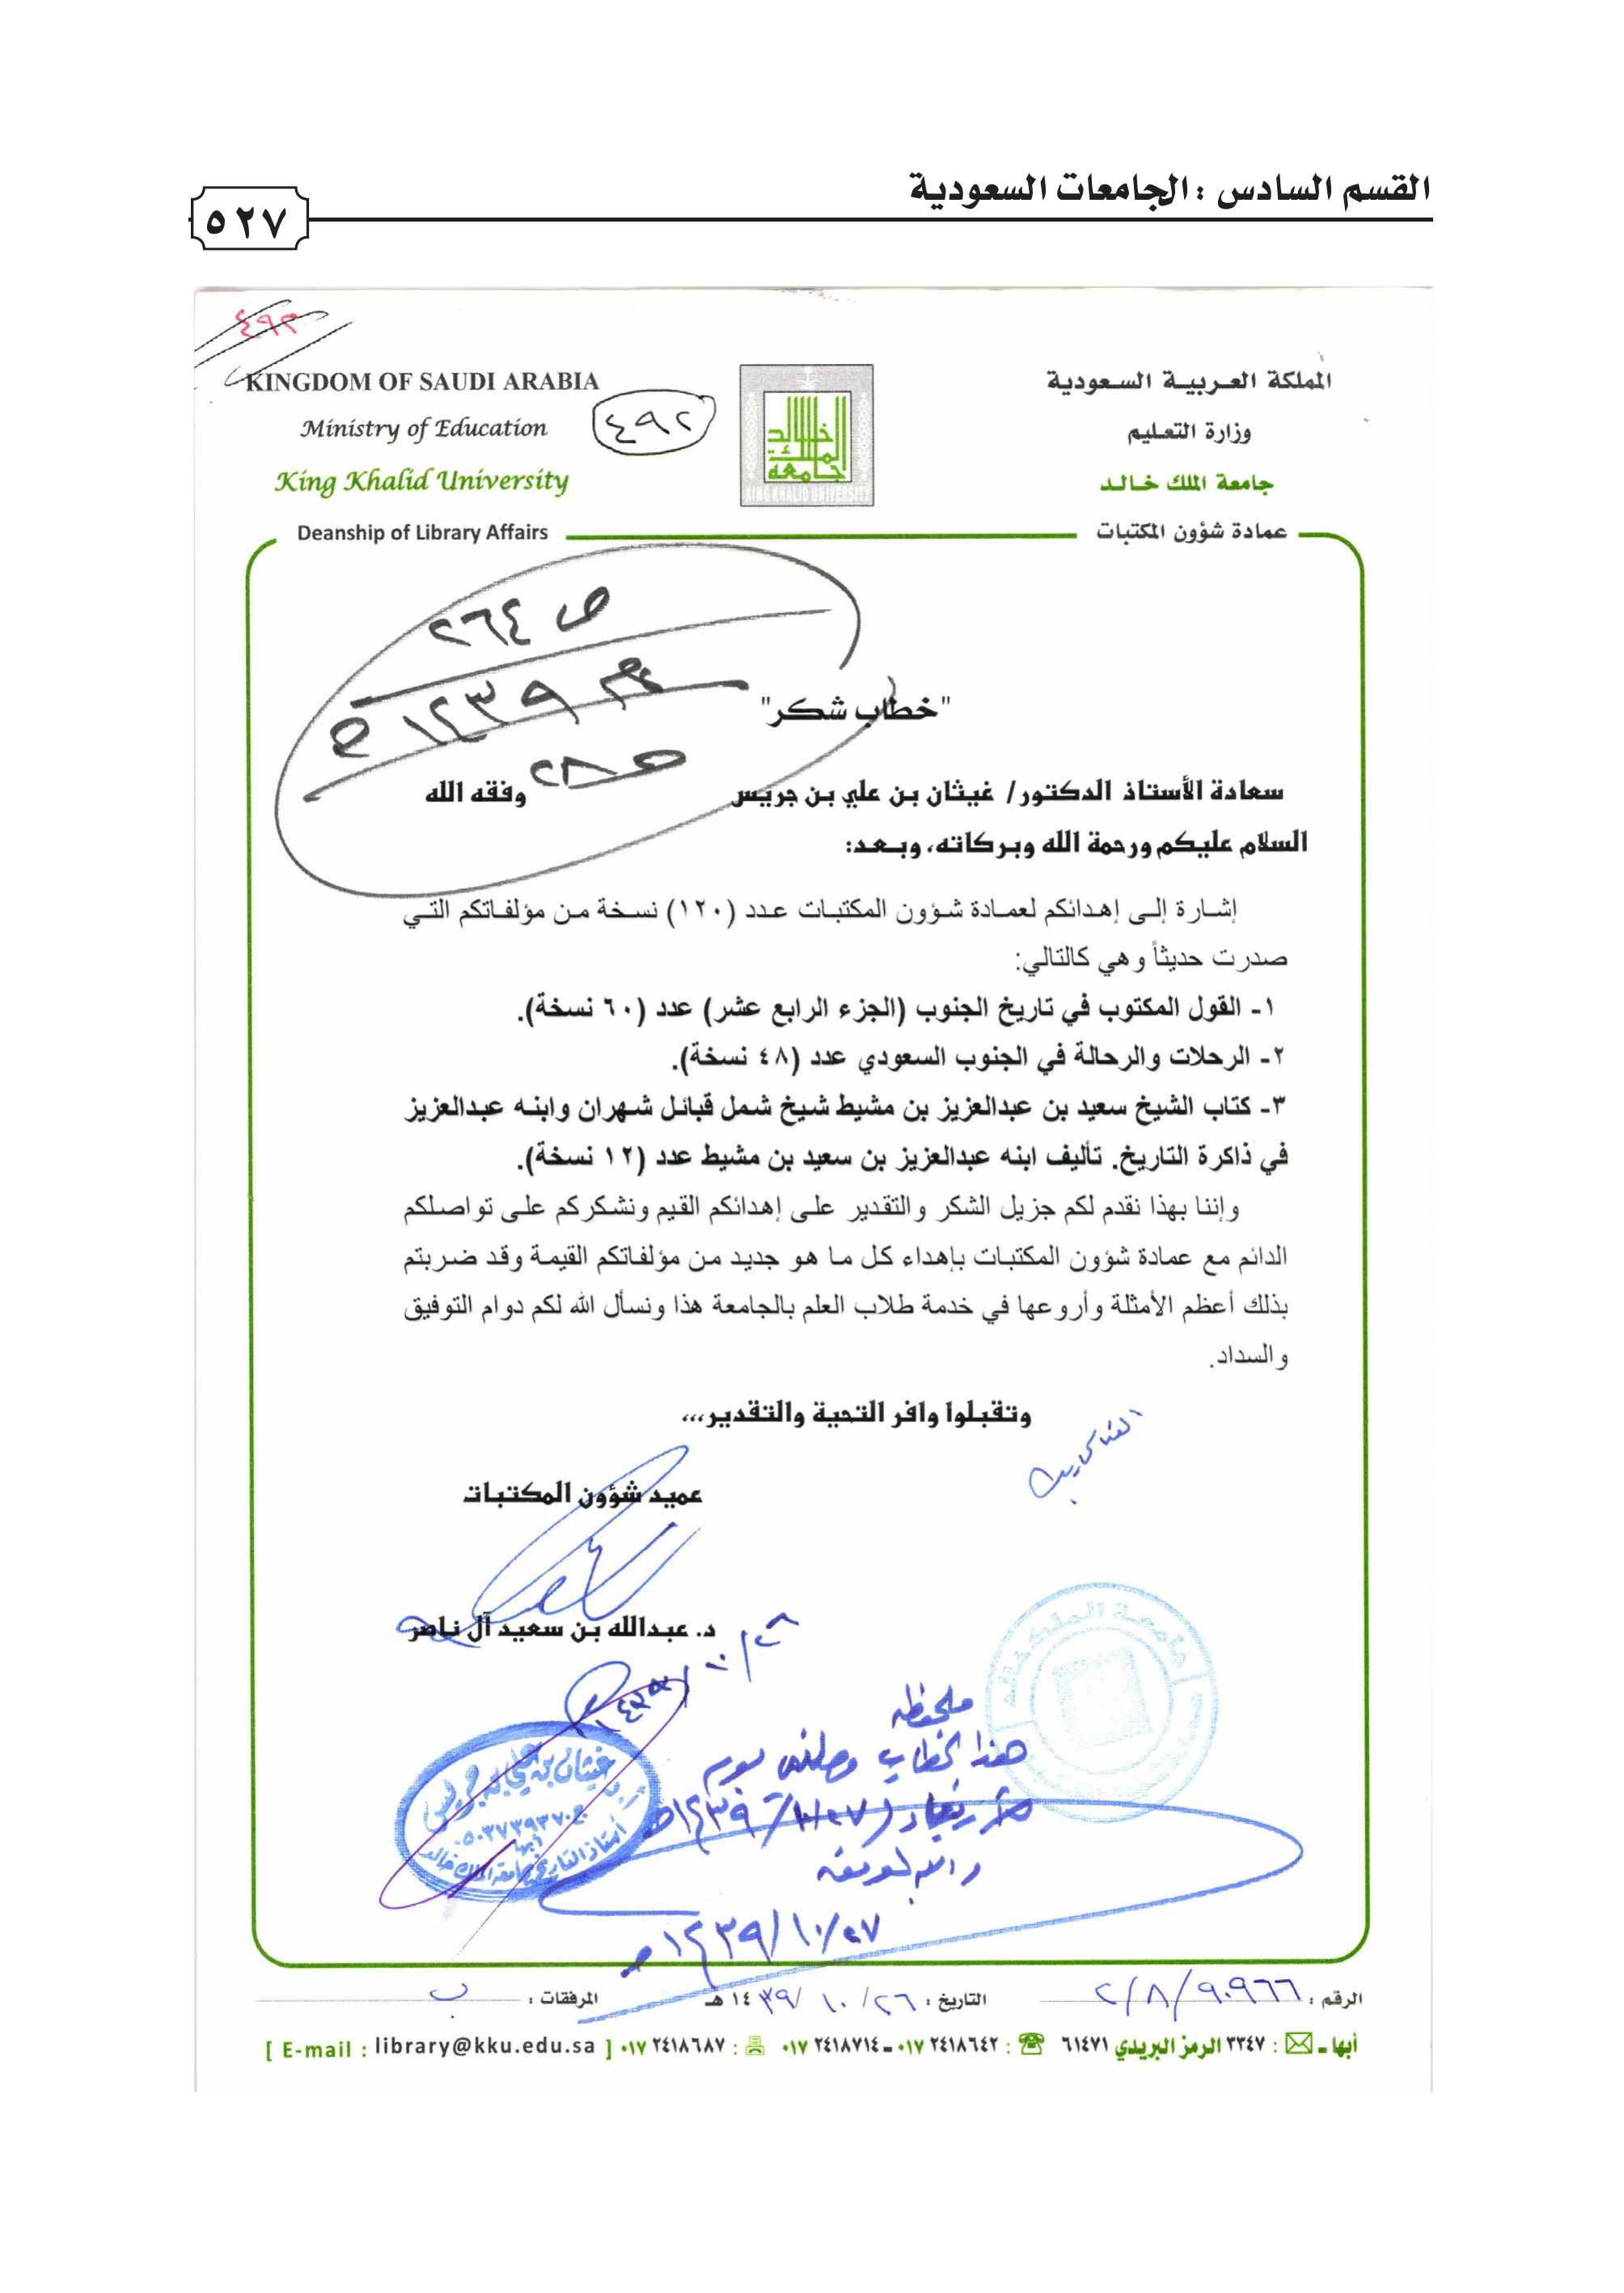 القسم السادس : الجامعات السعودية
٥٢٧
٤٩٢
المملكة العربية السعودية
KINGDOM OF SAUDI ARABIA
وزارة التعليم
Ministry of Education
٤٩٢
جامعة الملك خالد
King Khalid University
جامعة الملك خالد
KING KHALID UNIVERSITY
عمادة شؤون المكتبات
Deanship of Library Affairs
ص ٢٦٤
"خطاب شكر"
سعادة الأستاذ الدكتور/ غيثان بن علي بن جريس وفقه الله
السلام عليكم ورحمة الله وبركاته، وبعد:
إشارة إلى إهدائكم لعمادة شؤون المكتبات عدد (١٢٠) نسخة من مؤلفاتكم التي
صدرت حديثاً وهي كالتالي:
١- القول المكتوب في تاريخ الجنوب (الجزء الرابع عشر) عدد (٦٠ نسخة).
٢- الرحلات والرحالة في الجنوب السعودي عدد (٤٨ نسخة).
٣- كتاب الشيخ سعيد بن عبدالعزيز بن مشيط شيخ شمل قبائل شهران وابنه عبدالعزيز
في ذاكرة التاريخ. تأليف ابنه عبدالعزيز بن سعيد بن مشيط عدد (١٢ نسخة).
وإننا بهذا نقدم لكم جزيل الشكر والتقدير على إهدائكم القيم ونشكركم على تواصلكم
الدائم مع عمادة شؤون المكتبات بإهداء كل ما هو جديد من مؤلفاتكم القيمة وقد ضربتم
بذلك أعظم الأمثلة وأروعها في خدمة طلاب العلم بالجامعة هذا ونسأل الله لكم دوام التوفيق
والسداد.
وتقبلوا وافر التحية والتقدير،،،
عميد شؤون المكتبات
د. عبدالله بن سعيد آل ناصر
ملحوظه
هذا الخطاب وصلني يوم
والله الموفق
١٤٣٩/١٠/٢٧هـ
غيثان بن علي بن جريس
٠٥٠٣٧٣٩٣٧٠
أبها
أستاذ التاريخ بجامعة الملك خالد
الرقم : ٢/٨/٩٠٩٦٦ التاريخ : ٢٦/ ١٠ /١٤٣٩هـ المرفقات : ب
أبها - : ٣٣٤٧ الرمز البريدي ٦١٤٧١ : ٠١٧ ٢٤١٨٦٤٢ - ٠١٧ ٢٤١٨٧١٤ : ٠١٧ ٢٤١٨٦٨٧ [ E-mail : library@kku.edu.sa ]